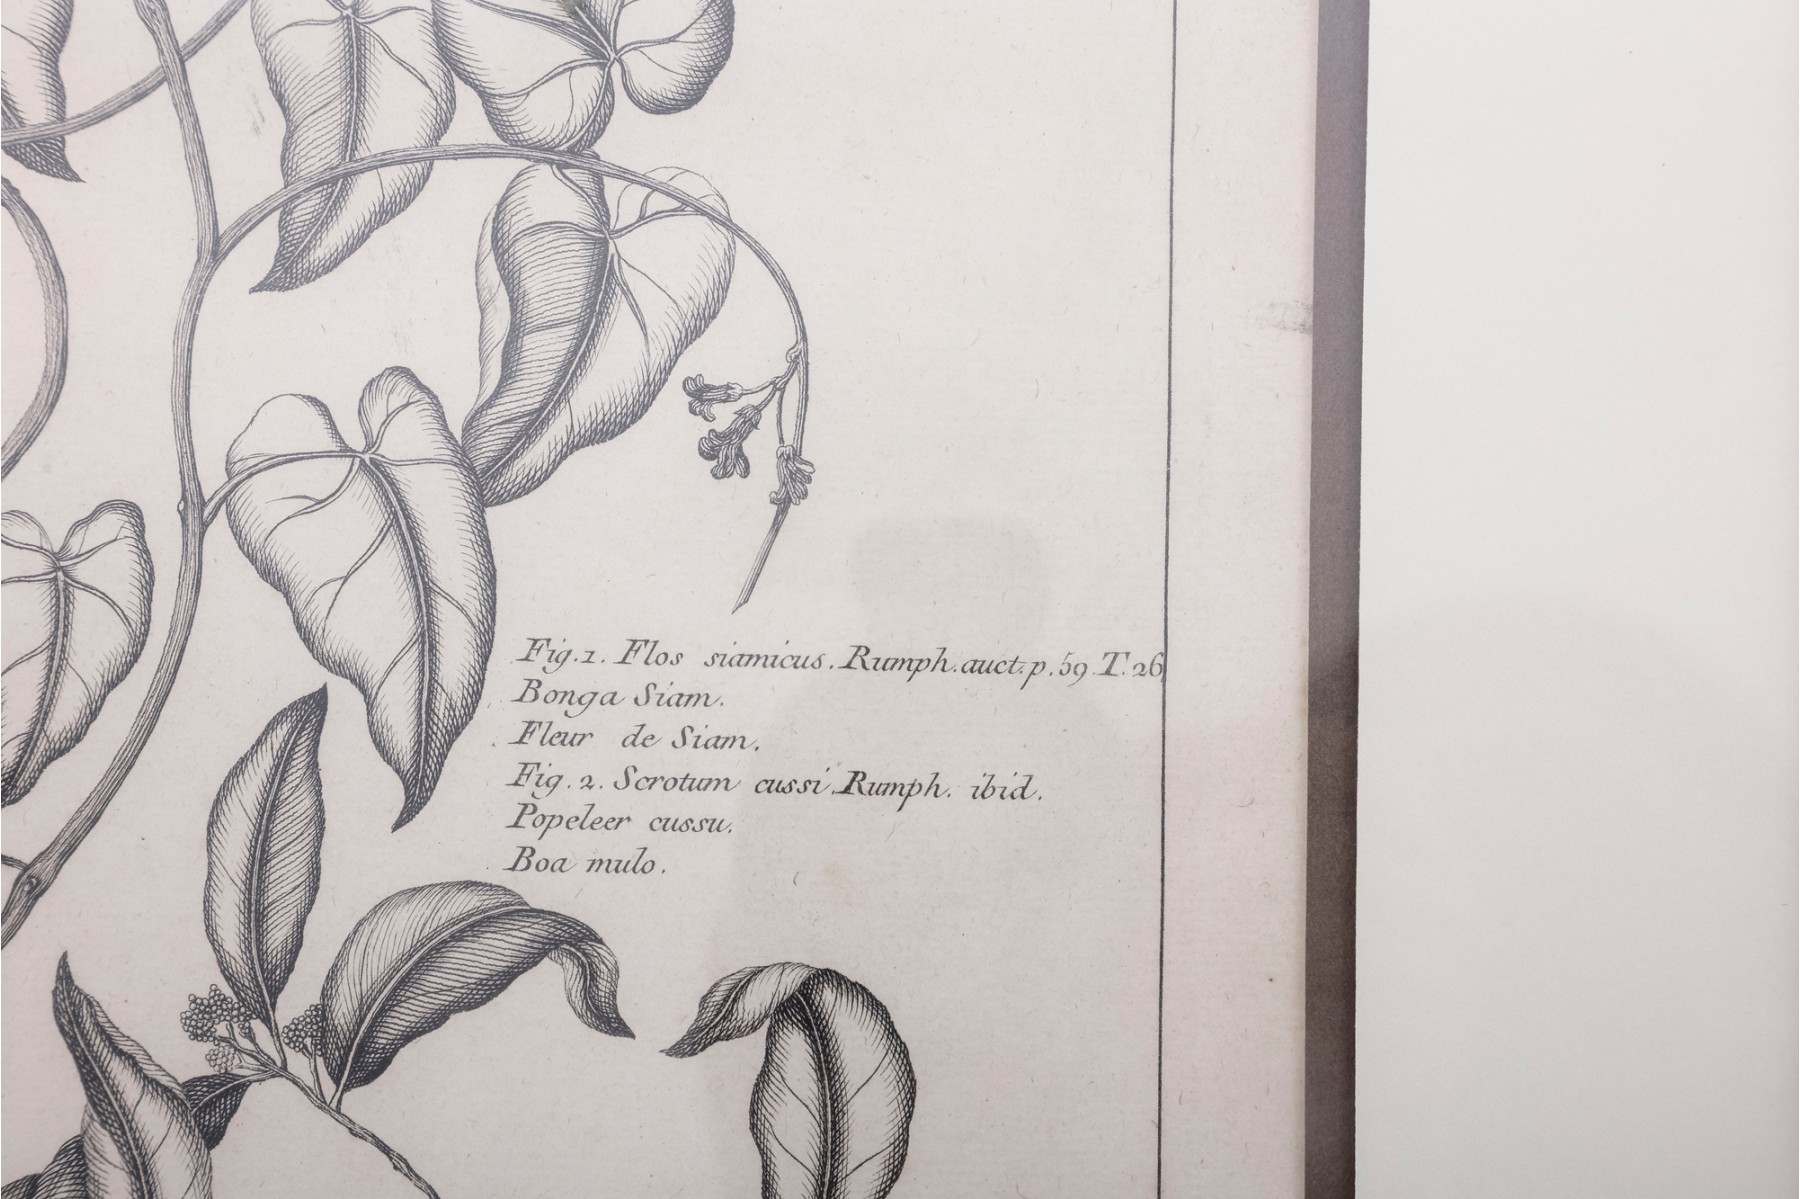 Fig.1. Flos siamicus. Rumph. auct. p. 59. T. 26
Bonga Siam.
Fleur de Siam.
Fig. 2. Scrotum cussi. Rumph. ibid.
Popeleer cussu.
Boa mulo.